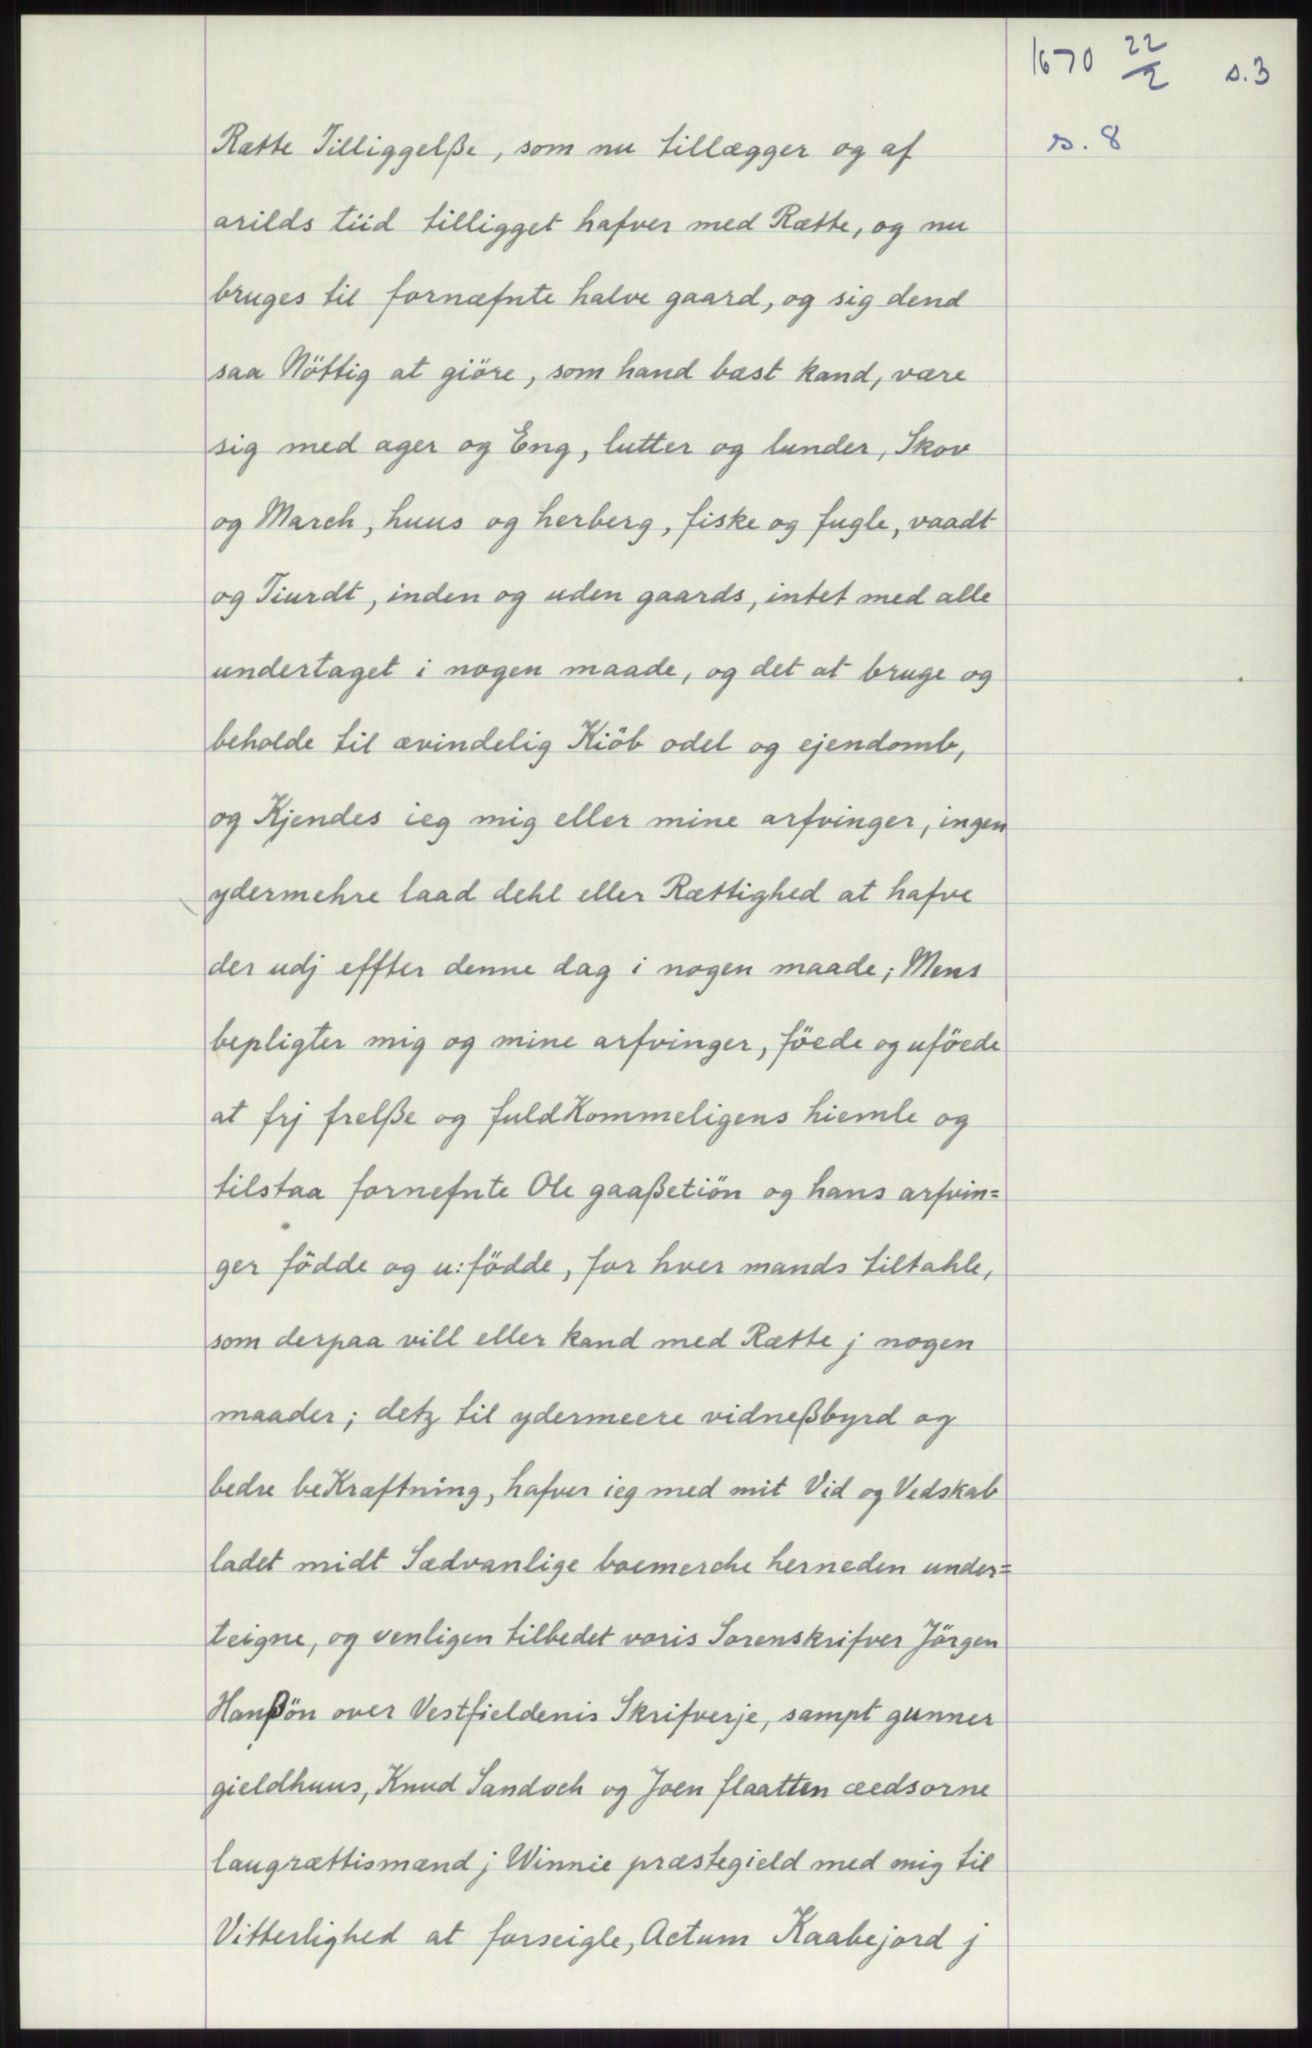 1670 22/2 s.3
s. 8
Rætte Tilliggelße, som nu tillægger og af
arilds tiid tilligget hafver med Rætte, og nu
bruges til fornæfnte halve gaard, og sig dend
saa Nöttig at giöre, som hand bæst kand, være
sig med ager og Eng, lutter og lunder, Skov
og March, huus og herberg, fiske og fugle, vaadt
og Tiurdt, inden og uden gaards, intet med alle
undertaget i nogen maade, og det at bruge og
beholde til ævindelig Kiöb odel og ejendomb,
og Kjendes ieg mig eller mine arfvinger, ingen
ydermehre laad dehl eller Rættighed at hafve
der udj effter denne dag i nogen maade; Mens
bepligter mig og mine arfvinger, föede og uföede
at frj frelße og fuldKommeligens hiemle og
tilstaa fornefnte Ole gaaßetiön og hans arfvin=
ger födde og u:födde, for hver mands tiltahle,
som derpaa vill eller kand med Rætte j nogen
maader; detz til ydermeere vidneßbyrd og
bedre beKræftning, hafver ieg med mit Vid og Vedskab
ladet midt Sædvanlige boemerche herneden under=
teigne, og venligen tilbedet voris Sorenskrifver Jörgen
Hanßön over Vestfieldenis Skrifverje, sampt gunner
gieldhuus, Knud Sandoch og Joen flaatten æedsorne
laugrættismænd j Winnie præstegield med mig til
Vitterlighed at forseigle, Actum Kaabejord j